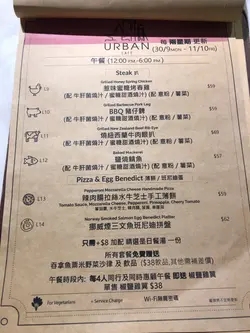 URBAN
CAFE
每 兩星期 更新
(30/9 MON - 11/10 FRI)
午餐 (12:00 P.M.-6:00 P.M.)
Steak 扒
Grilled Honey Spring Chicken
L9
惹味蜜糖烤春雞
$59
(配 牛肝菌燒汁 / 蜜糖甜酒燒汁) (配 意粉 / 薯菜)
Grilled Barbecue Pork Leg
L10
BBQ 豬仔髀
(配 牛肝菌燒汁 / 蜜糖甜酒燒汁) (配 意粉 / 薯菜)
Grilled New Zealand Beef Rib-Eye
L11
燒紐西蘭牛肉眼扒
(配 牛肝菌燒汁 / 蜜糖甜酒燒汁) (配 意粉 / 薯菜)
Baked Mackerel
L12
鹽燒鯖魚
$59
(配 意粉 / 薯菜)
Pizza & Egg Benedict 薄餅 / 班尼迪蛋
Pepperoni Mozzarella Cheese Handmade Pizza
辣肉腸拉絲水牛芝士手工薄餅
Tomato Sauce, Mozzarella Cheese, Pepperoni, Pineapple, Cherry Tomato
L14
Norway Smoked Salmon Egg Benedict Platter
挪威煙三文魚班尼迪拼盤
$62
只需+$8 加配 精選是日餐湯 一份
所有套餐免費贈送
每4人同行及同時惠顧午餐 即送 椒鹽雞翼
單售 椒鹽雞翼 $38
For Vegetarians
+ Service Charge
Wi-Fi